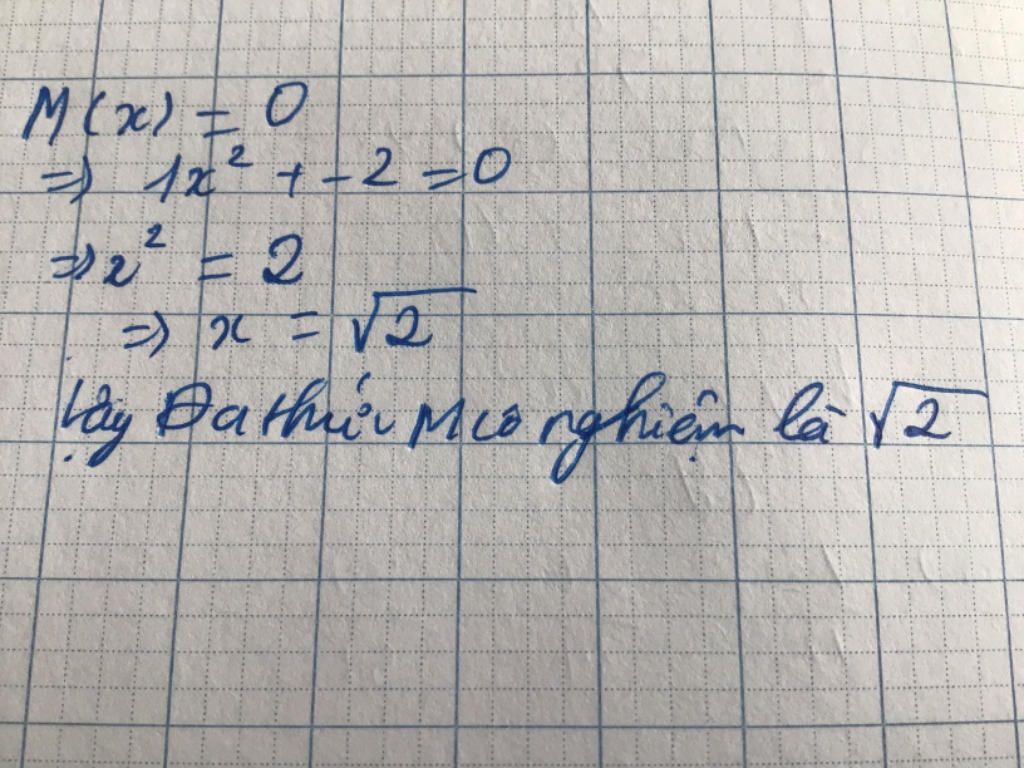 M(x) = 0
=> 1x² + - 2 = 0
=> x² = 2
=> x = √2
Vậy Đa thức M có nghiệm là √2